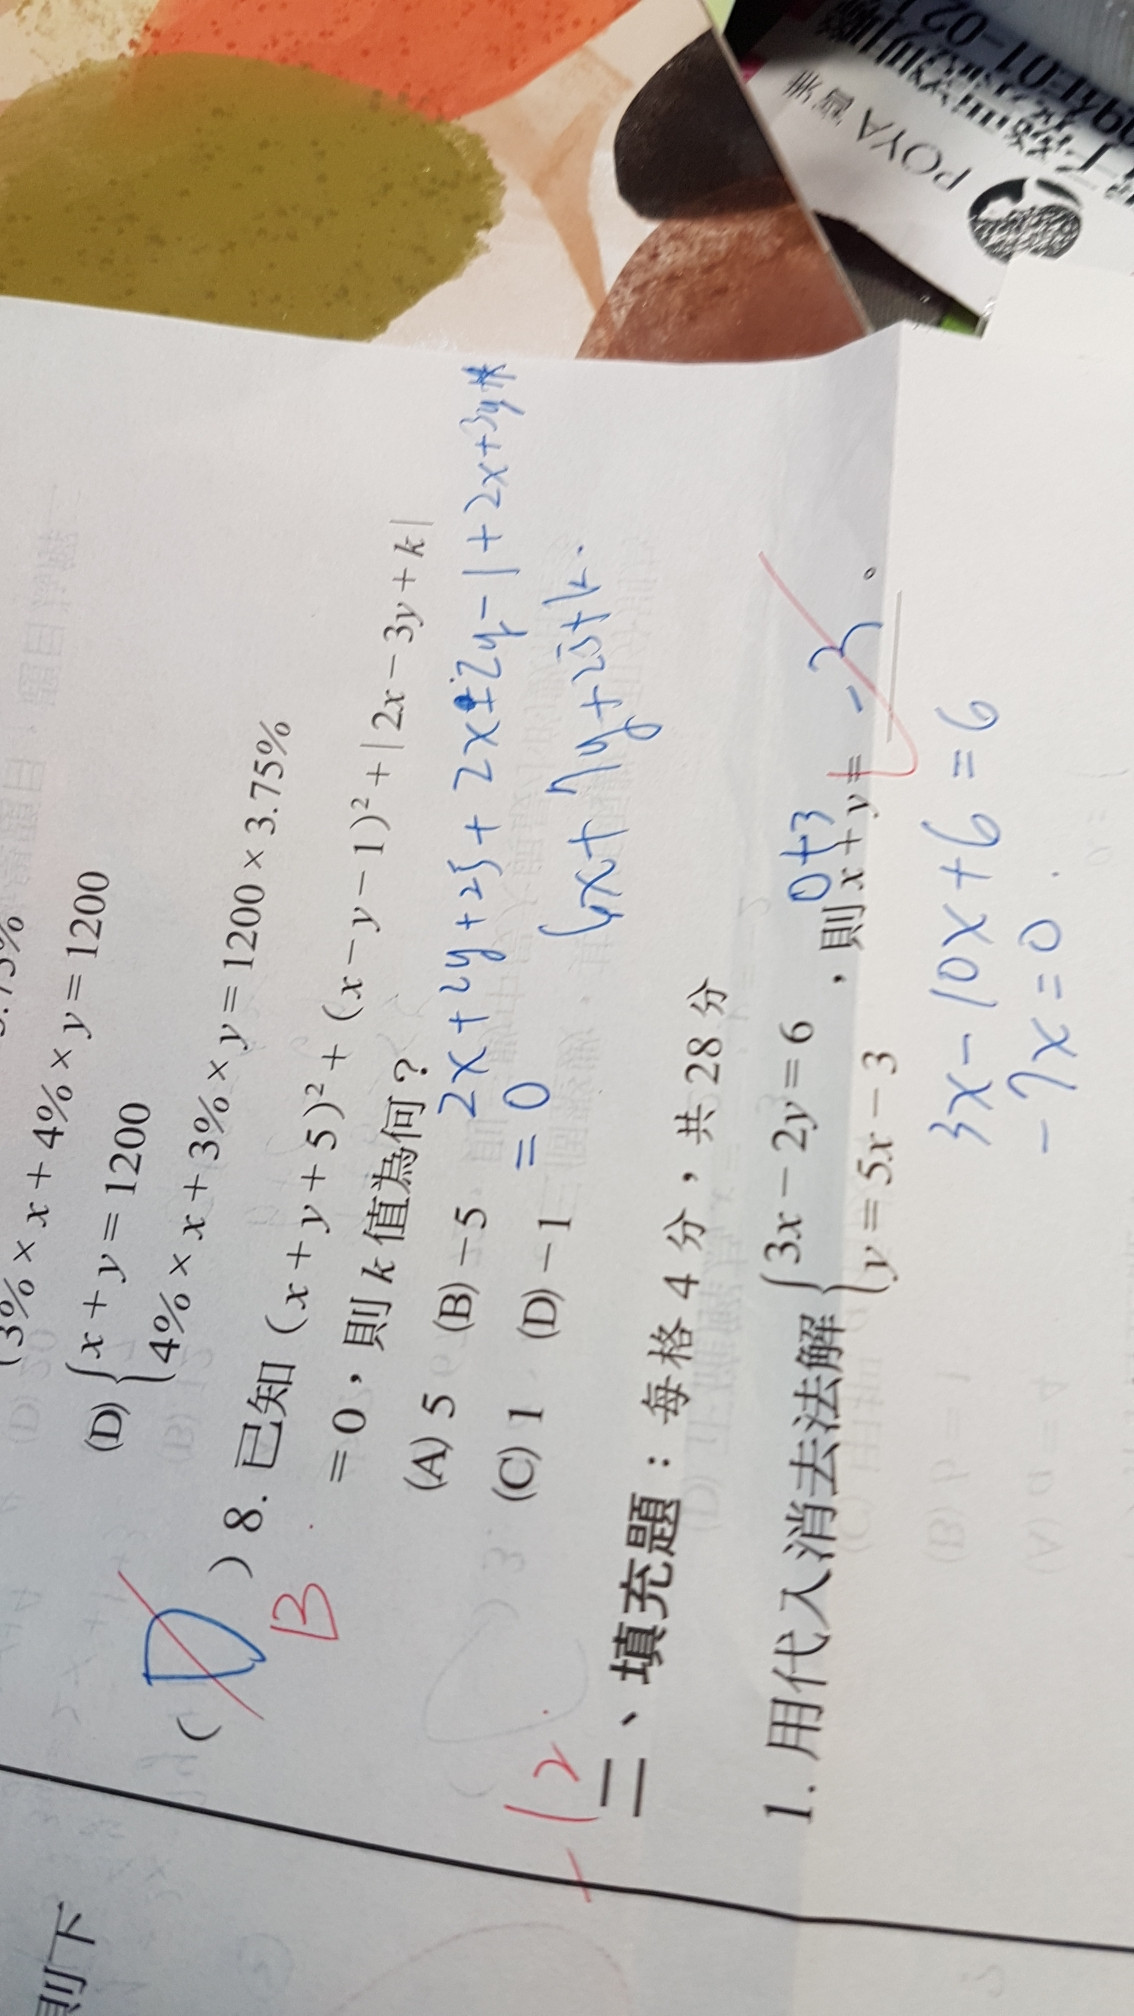 3% × x + 4% × y = 1200
(D) { x + y = 1200
4% × x + 3% × y = 1200 × 3.75%
( D ) 8. 已知 (x + y + 5)² + (x - y - 1)² + | 2x - 3y + k |
B
= 0，則 k 值為何？
(A) 5 (B) -5
2x + 2y + 25 + 2x ± 2y - 1 + 2x + 3y
(C) 1 (D) -1
= 0
6x + 7y + 25 + k.
-12
二、填充題：每格 4 分，共 28 分
1. 用代入消去法解 { 3x - 2y = 6
y = 5x - 3
，則 x + y = -3 。
0+3
3x - 10x + 6 = 6
-7x = 0
則下
POYA 寶雅